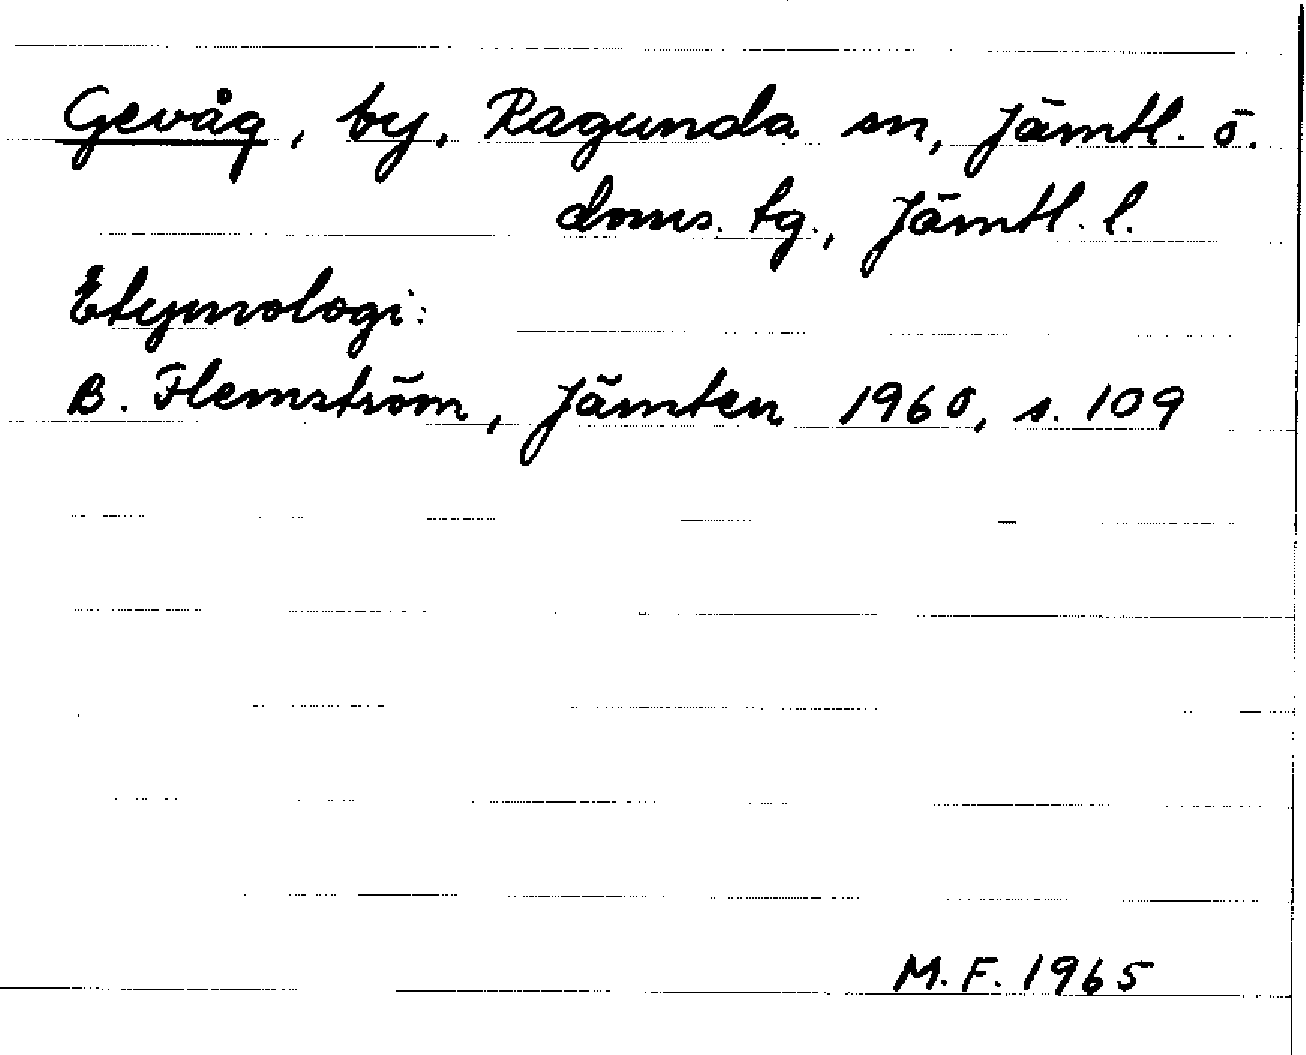 Gevåg, by, Ragunda sn, Jämtl. ö.
doms. tg., Jämtl. l.
Etymologi:
B. Flemström, Jämten 1960, s. 109
M. F. 1965